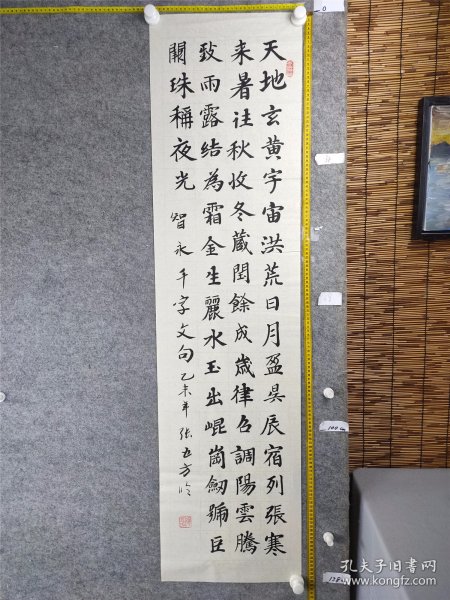 天地玄黄宇宙洪荒日月盈昃辰宿列張寒
来暑往秋收冬蔵閏餘成歳律召調陽雲騰
致雨露結為霜金生麗水玉出崐崗劒號巨
闕珠稱夜光 智永千字文句 乙未年 张五方临
0
100 cm
孔夫子旧书网
kongfz.com